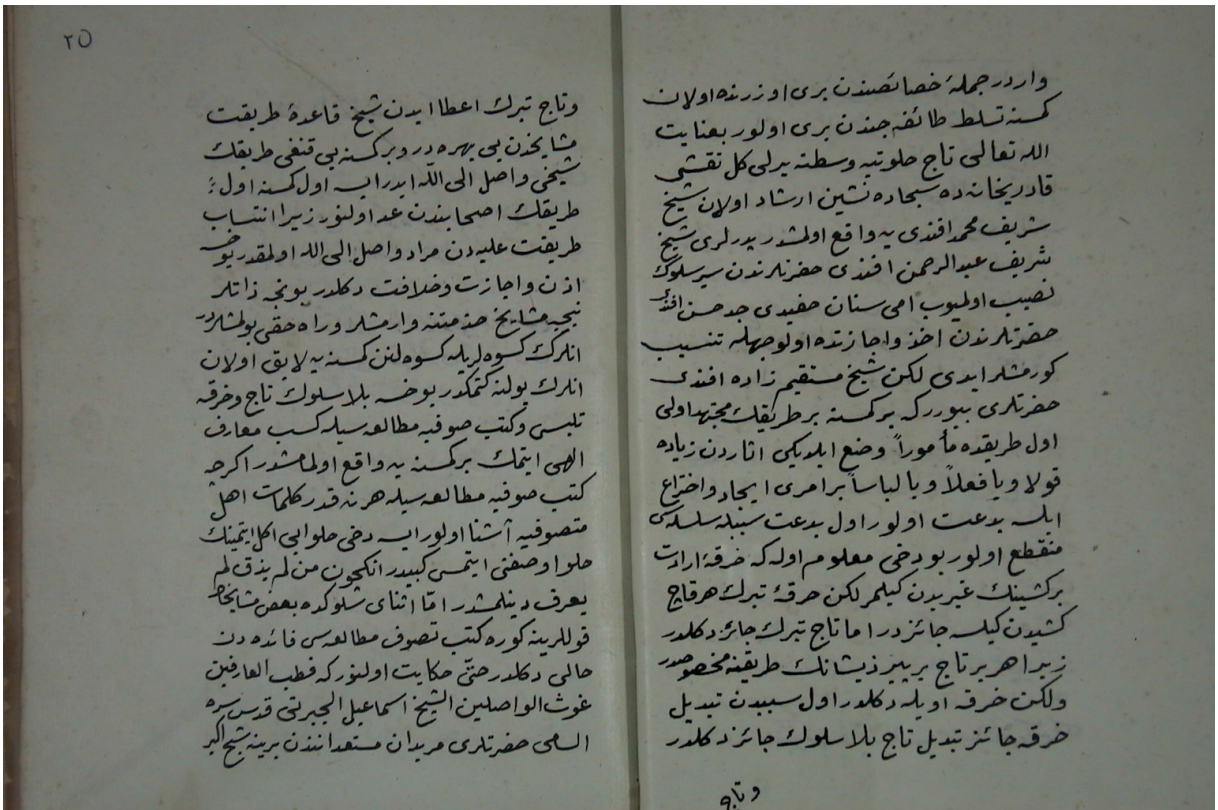 واردر جملۀ خصائصندن برى اوزرنده اولان
كمسنه تسلط طائفه جندن برى اولور بعنايت
الله تعالى تاج حلوتيه وسطنه يرلى كل نقشى
قادريخانه ده سجاده نشين ارشاد اولان شيخ
شريف محمد افندى يه واقع اولمشدر پدرلرى شيخ
شريف عبد الرحمن افندى حضرتلرندن سير سلوك
نصيب اولميوب امى سنان حفيدى جد حسن افندى
حضرتلرندن اخذ واجازتده اولوجهله تنسيب
كورمشلر ايدى لكن شيخ مستقيم زاده افندى
حضرتلرى بيوررکه بر كمسنه بر طريقك مجتهد اولى
اول طريقده مأموراً وضع ايلديكى اثاردن زياده
قولا ويا فعلاً ويا لباساً بر امرى ايجاد واختراع
ايلسه بدعت اولور اول بدعت سببله سلسله سى
منقطع اولور بو دخى معلوم اوله كه خرقۀ ارادت
بر كشينك غيريدن كيلمز لكن خرقۀ تبرك هر قاچ
كشيدن كيلسه جائزدر اما تاج تبرك جائز دكلدر
زيرا هر بر تاج بر پير ذيشانك طريقنه مخصوصدر
ولكن خرقه اويله دكلدر اول سببدن تبديل
خرقه جائز تبديل تاج بلا سلوك جائز دكلدر
وتاج
٢٥
وتاج تبرك اعطا ايدن شيخ قاعدۀ طريقت
مشايخدن بى بهره در وبر كسنه يى قنغى طريقك
شيخى واصل الى الله ايدر ايسه اول كمسنه اول
طريقك اصحابندن عد اولنور زيرا انتساب
طريقت عليه دن مراد واصل الى الله اولمقدر يوخسه
اذن واجازت وخلافت دكلدر بونجه ذاتلر
نيجه مشايخ خدمتنه وارمشلر وراه حقى بولمشلردر
انلرك كسوه لريله كسوه لنن كمسنه يه لايق اولان
انلرك يولنه كتمكدر يوخسه بلا سلوك تاج وخرقه
تلبس وكتب صوفيه مطالعه سيله كسب معارف
الهى ايتمك بر كسنه يه واقع اولمامشدر اكرچه
كتب صوفيه مطالعه سيله هر نه قدر كلمات اهل
متصوفيه آشنا اولور ايسه دخى حلوايى اكل ايتمينك
حلوا وصفنى ايتمسى كبيدر انكچون من لم يذق لم
يعرف دينلمشدر اما اثناى سلوكده بعض مشايخك
قوللرينه كوره كتب تصوف مطالعه سى فائده دن
خالى دكلدر حتى حكايت اولنور كه قطب العارفين
غوث الواصلين الشيخ اسماعيل الجبرتى قدس سره
السامى حضرتلرى مريدان مستعداننذن برينه شيخ اكبر